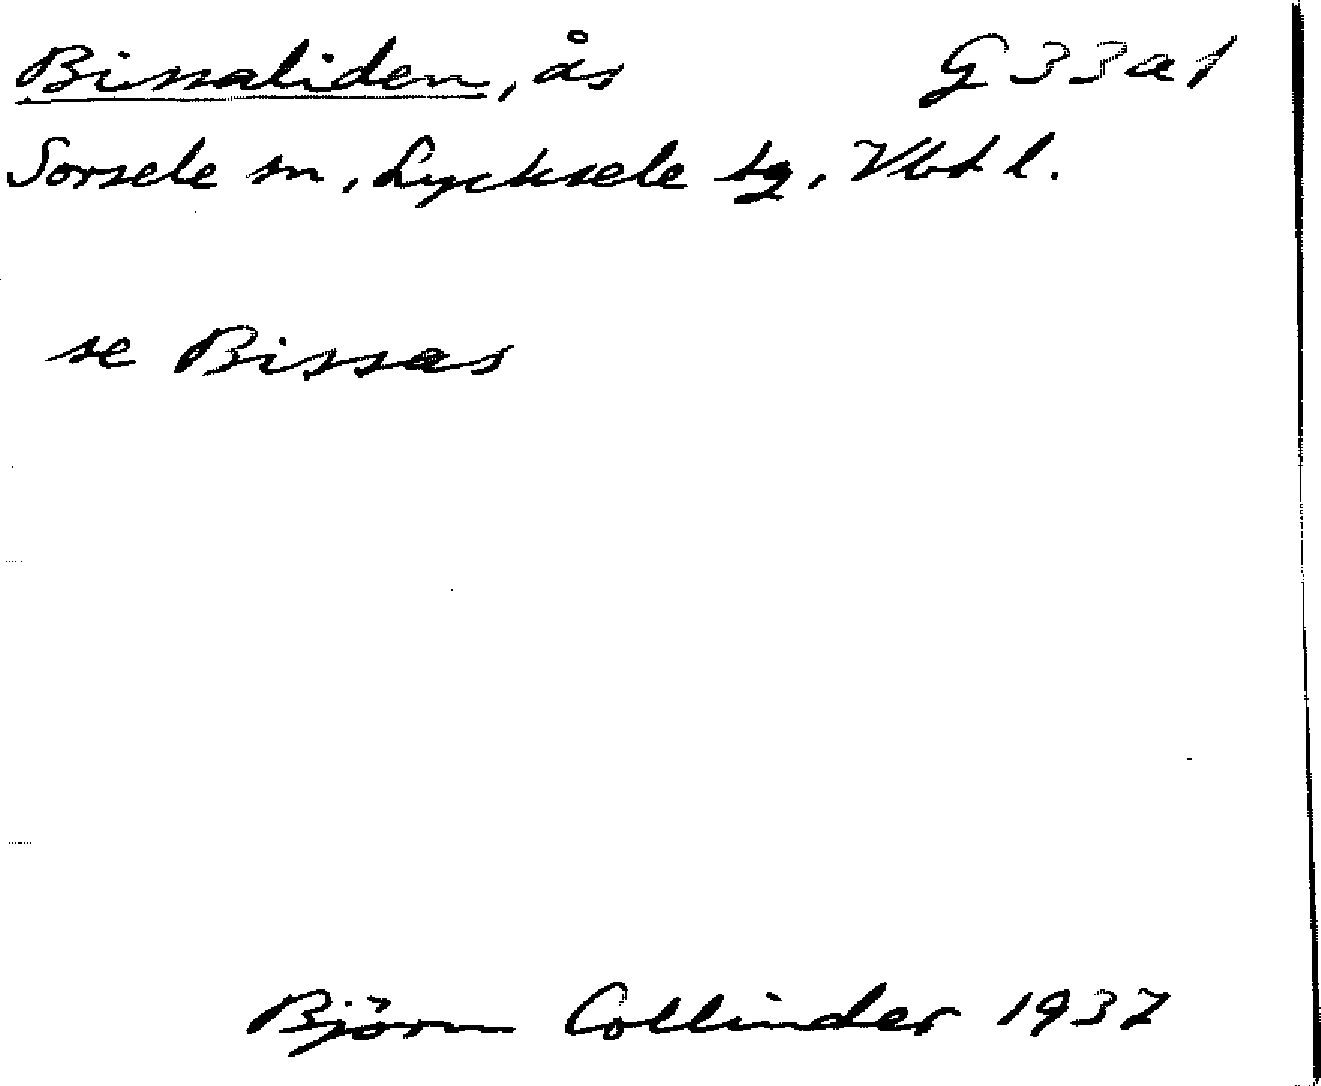 Bissaliden, ås G33a1
Sorsele sn, Lycksele tg, Vbtl.
se Bissas
Björn Collinder 1937